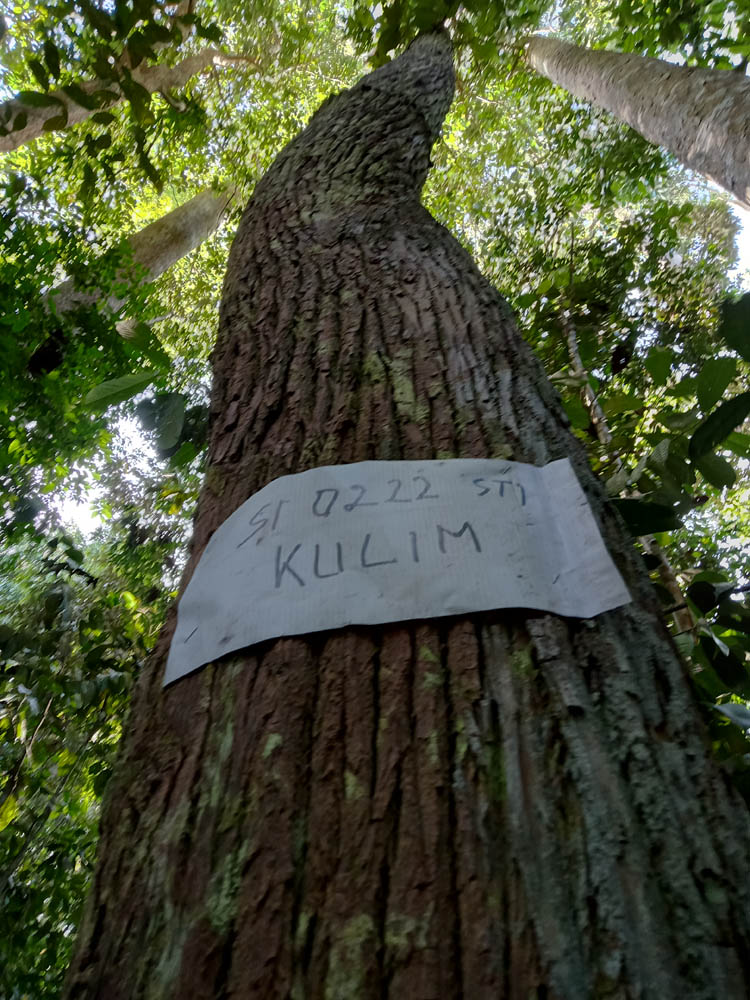 ST 0222 ST1
KULIM